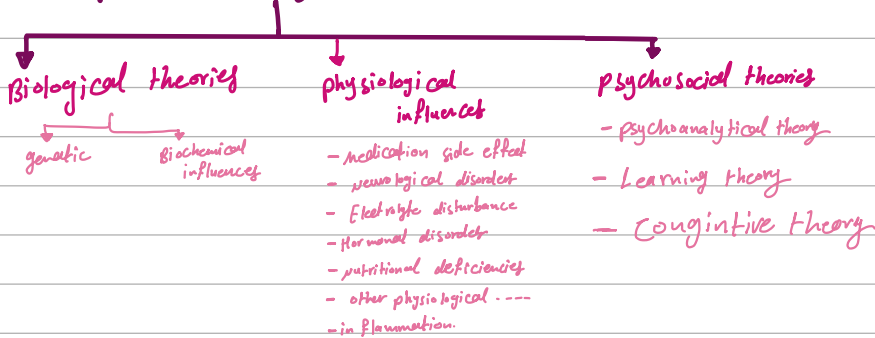 Biological theories
genetic
Biochemical
influences
physiological
influences
- medication side effect
- neurological disorders
- Electrolyte disturbance
- Hormonal disorder
- nutritional deficiencies
- other physiological ----
- inflammation.
psychosocial theories
- psychoanalytical theory
- Learning theory
- Congintive theory